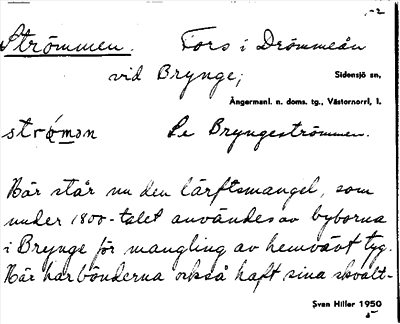 -2
Strömmen. Fors i Drömmeån
vid Brynge;
Sidensjö sn,
Ångermanl. n. doms. tg., Västernorrl. l.
strö́mən Se Bryngeströmmen.
Här står nu den lärftsmangel, som
under 1800-talet användes av byborna
i Brynge för mangling av hemvävt tyg.
Här har bönderna också haft sina skvält-
Sven Hiller 1950